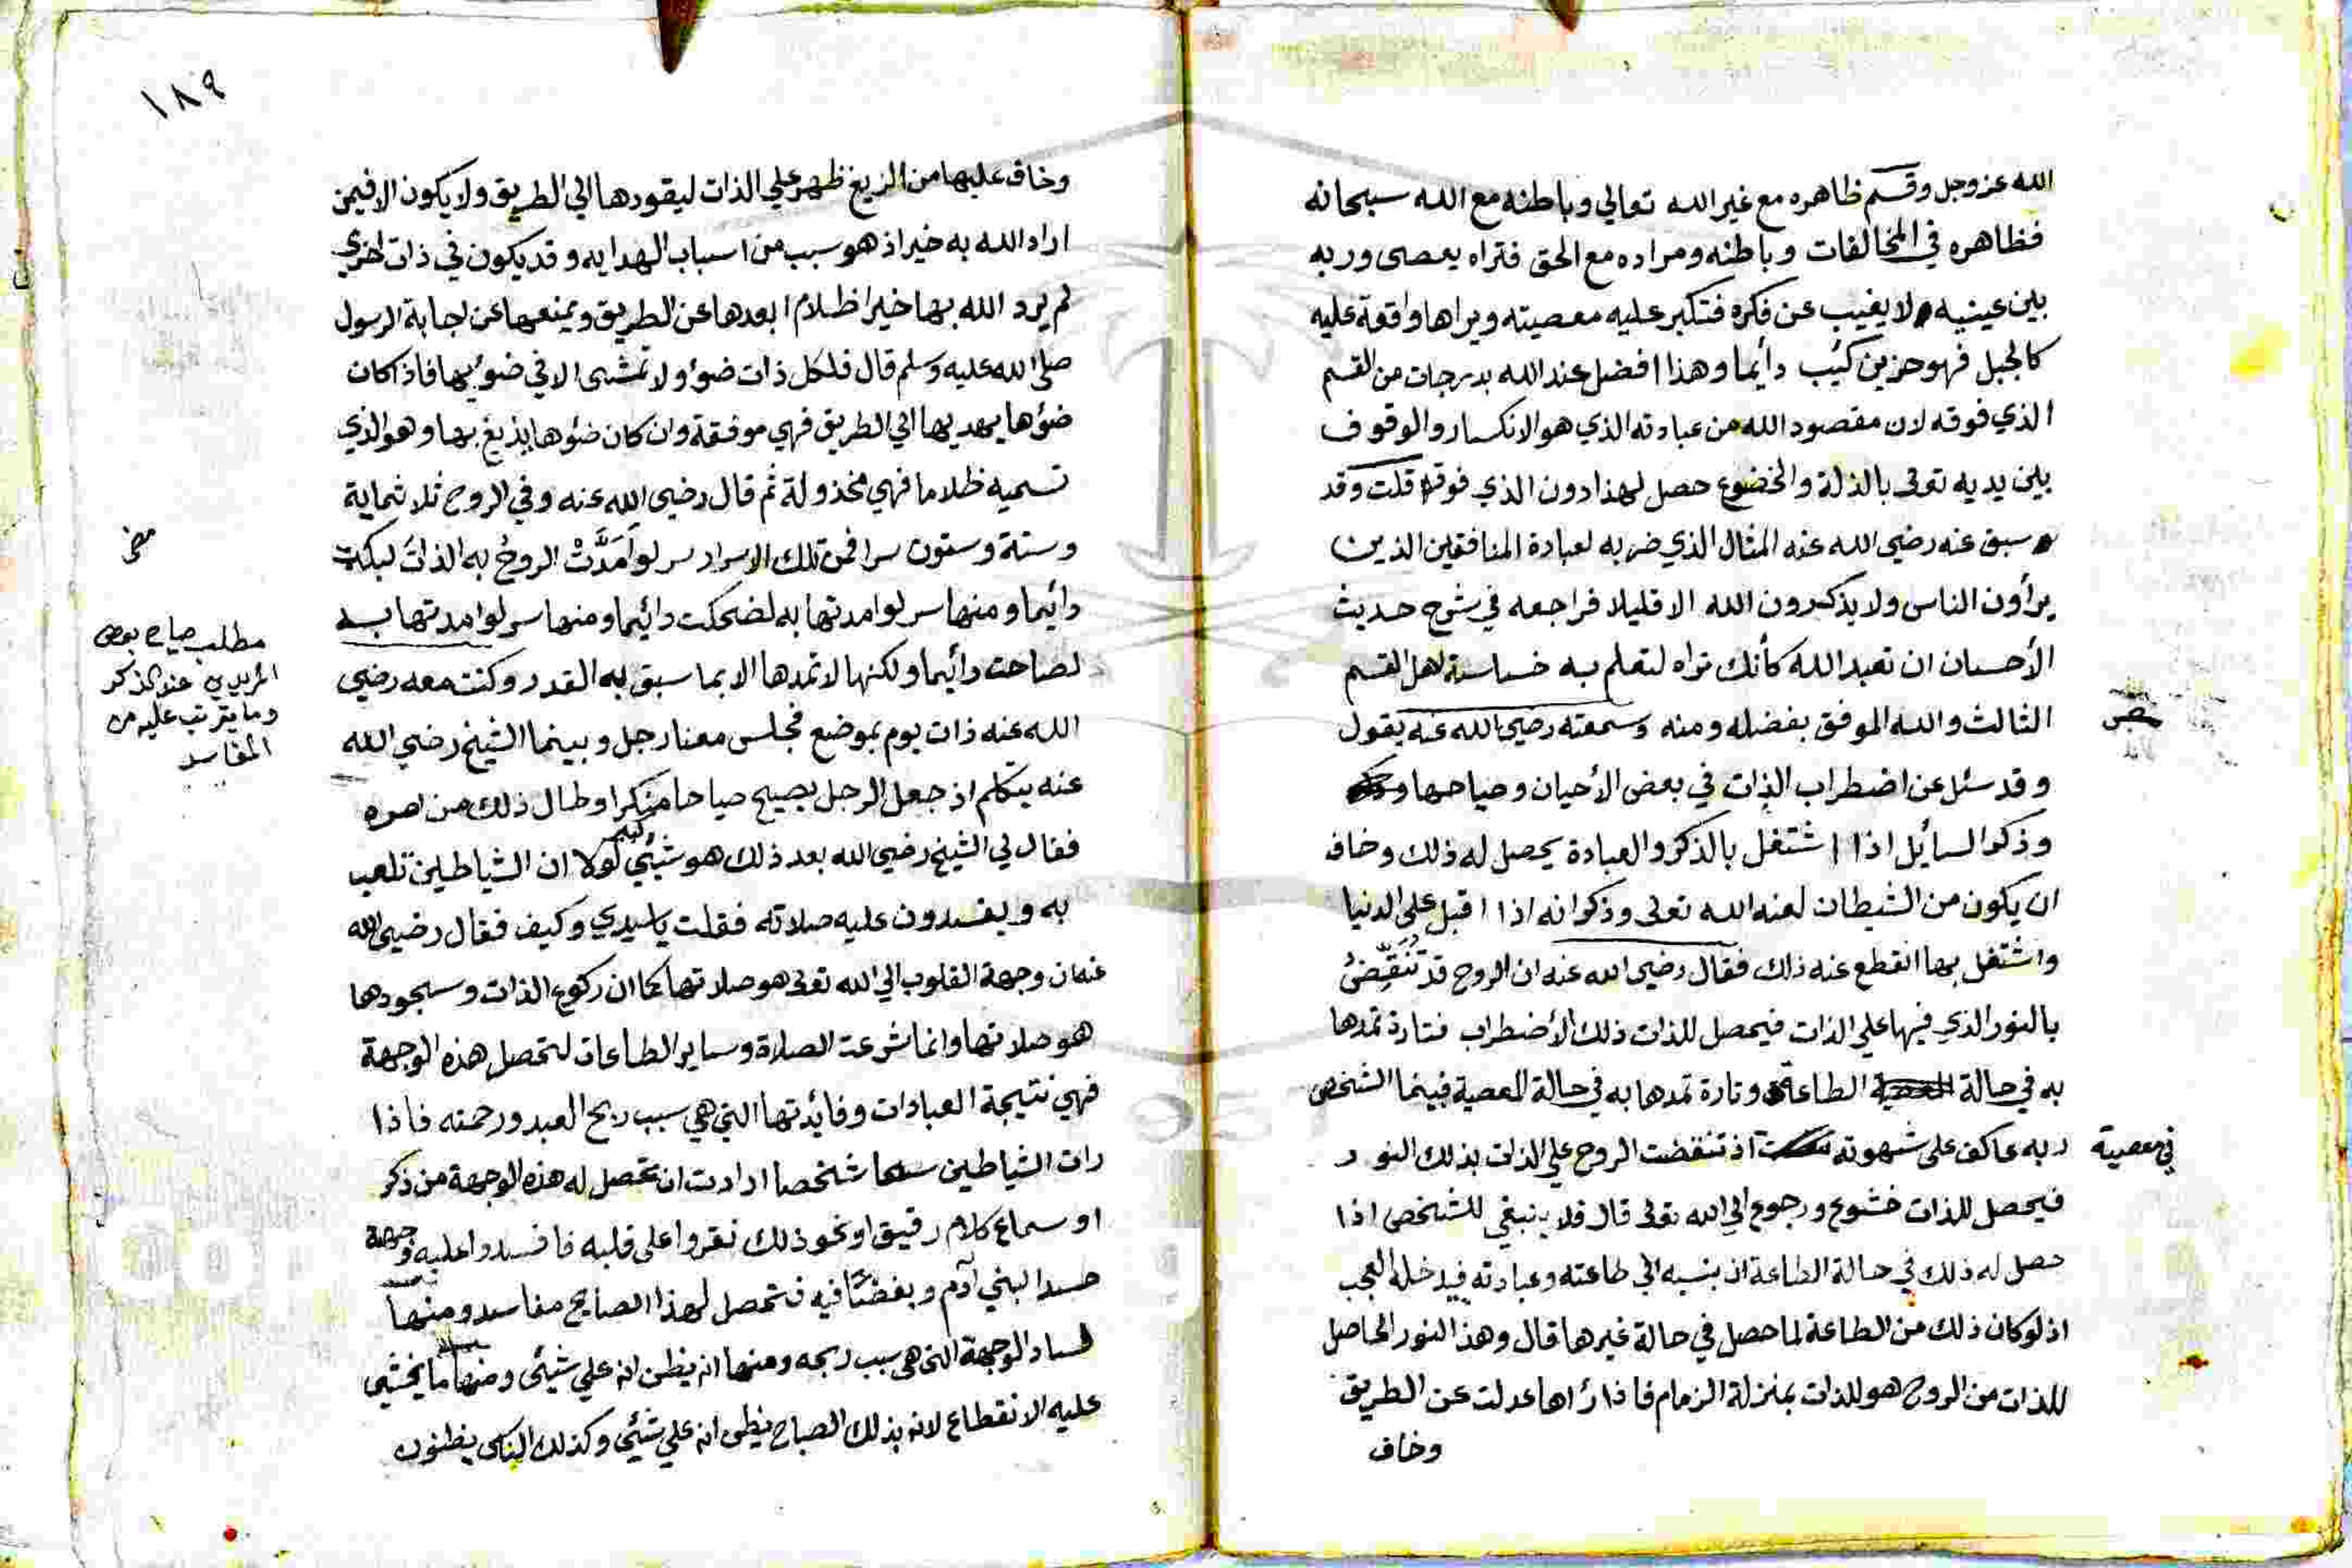 الله عز وجل وقسم ظاهره مع غير الله تعالي وباطنه مع الله سبحانه
فظاهره في المخالفات وباطنه ومراده مع الحق فتراه يعصى وربه
بين عينيه ولا يغيب عن فكره فتكبر عليه معصيته ويراها واقعة عليه
كالجبل فهو حزين كئيب دائما وهذا افضل عند الله بدرجات من القسم
الذي فوقه لان مقصود الله من عبادته الذي هو الانكسار والوقوف
بين يديه تعالى بالذلة والخضوع حصل لهذا دون الذي فوقه قلت وقد
سبق عنه رضي الله عنه المثال الذي ضربه لعبادة المنافقين الذين
يرأون الناس ولا يذكرون الله الا قليلا فراجعه في شرح حديث
الأحسان ان تعبد الله كأنك تراه لتعلم به خساسة اهل القسم
الثالث والله الموفق بفضله ومنه وسمعته رضي الله عنه يقول
وقد سئل عن اضطراب الذات في بعض الأحيان وصياحها
وذكر السايل اذا اشتغل بالذكر والعبادة يحصل له ذلك وخاف
ان يكون من الشيطان لعنه الله تعالى وذكر انه اذا اقبل على الدنيا
واشتغل بها انقطع عنه ذلك فقال رضي الله عنه ان الروح قد تنقض
بالنور الذي فيها علي الذات فيحصل للذات ذلك الأضطراب فتارة تمدها
به في حالة الطاعة وتارة تمدها به في حالة المعصية فبينما الشخص
في معصية ربه عاكف على شهوته اذ تنقضت الروح علي الذات بذلك النور
فيحصل للذات خشوع ورجوع الي الله تعالى قال فلا ينبغي للشخص اذا
حصل له ذلك في حالة الطاعة ان ينسبه الي طاعته وعبادته فيدخله العجب
اذ لو كان ذلك من الطاعة لما حصل في حالة غيرها قال وهذا النور الحاصل
للذات من الروح هو للذات بمنزلة الزمام فاذا رأها عدلت عن الطريق
وخاف
١٨٩
وخاف عليها من الزيغ ظهر علي الذات ليقودها الي الطريق ولا يكون الا فيمن
اراد الله به خيرا اذ هو سبب من اسباب الهدايه وقد يكون في ذات اخري
لم يرد الله بها خيرا ظلام ابعدها عن الطريق ويمنعها عن اجابة الرسول
صلى الله عليه وسلم قال فلكل ذات ضوء ولا تمشى الا في ضوئها فاذا كان
ضوءها يهديها الي الطريق فهي موفقة وان كان ضوءها يزيغ بها وهو الذي
تسميه ظلاما فهي مخذولة ثم قال رضي الله عنه وفي الروح ثلاثماية
وستة وستون سرا فمن تلك الاسرار سر لو امدت الروح به الذات لبكت
دائما ومنها سر لو امدتها به لضحكت دائما ومنها سر لو امدتها به
لصاحت دائما ولكنها لا تمدها الا بما سبق به القدر وكنت معه رضي
الله عنه ذات يوم بموضع فجلس معنا رجل وبينما الشيخ رضي الله
عنه يتكلم اذ جعل الرجل يصيح صياحا منكرا وطال ذلك من امره
فقال لي الشيخ رضي الله بعد ذلك هو شيئ كبير لولا ان الشياطين تلعب
به ويفسدون عليه صلاته فقلت ياسيدي وكيف فقال رضي الله
عنه ان وجهة القلوب الي الله تعالى هو صلاتها كما ان ركوع الذات وسجودها
هو صلاتها وانما شرعت الصلاة وساير الطاعات لتحصل هذه الوجهة
فهي نتيجة العبادات وفائدتها التي هي سبب ربح العبد ورحمته فاذا
رات الشياطين شخصا ارادت ان تحصل له هذه الوجهة من ذكر
او سماع كلام رقيق او نحو ذلك نقروا على قلبه فافسدوا عليه وجهة
حسدا لبني آدم وبغضا فيه فتحصل لهذا الصايح مفاسد ومنها
فساد الوجهة التي هي سبب ربحه ومنها انه يظن انه علي شيئى ومنها ما يخشي
عليه الانقطاع لانه بذلك الصياح يظن انه علي شيئ وكذلك الناس يظنون
مطلب صياح بعض
المريدين عند الذكر
وما يترتب عليه من
المفاسد